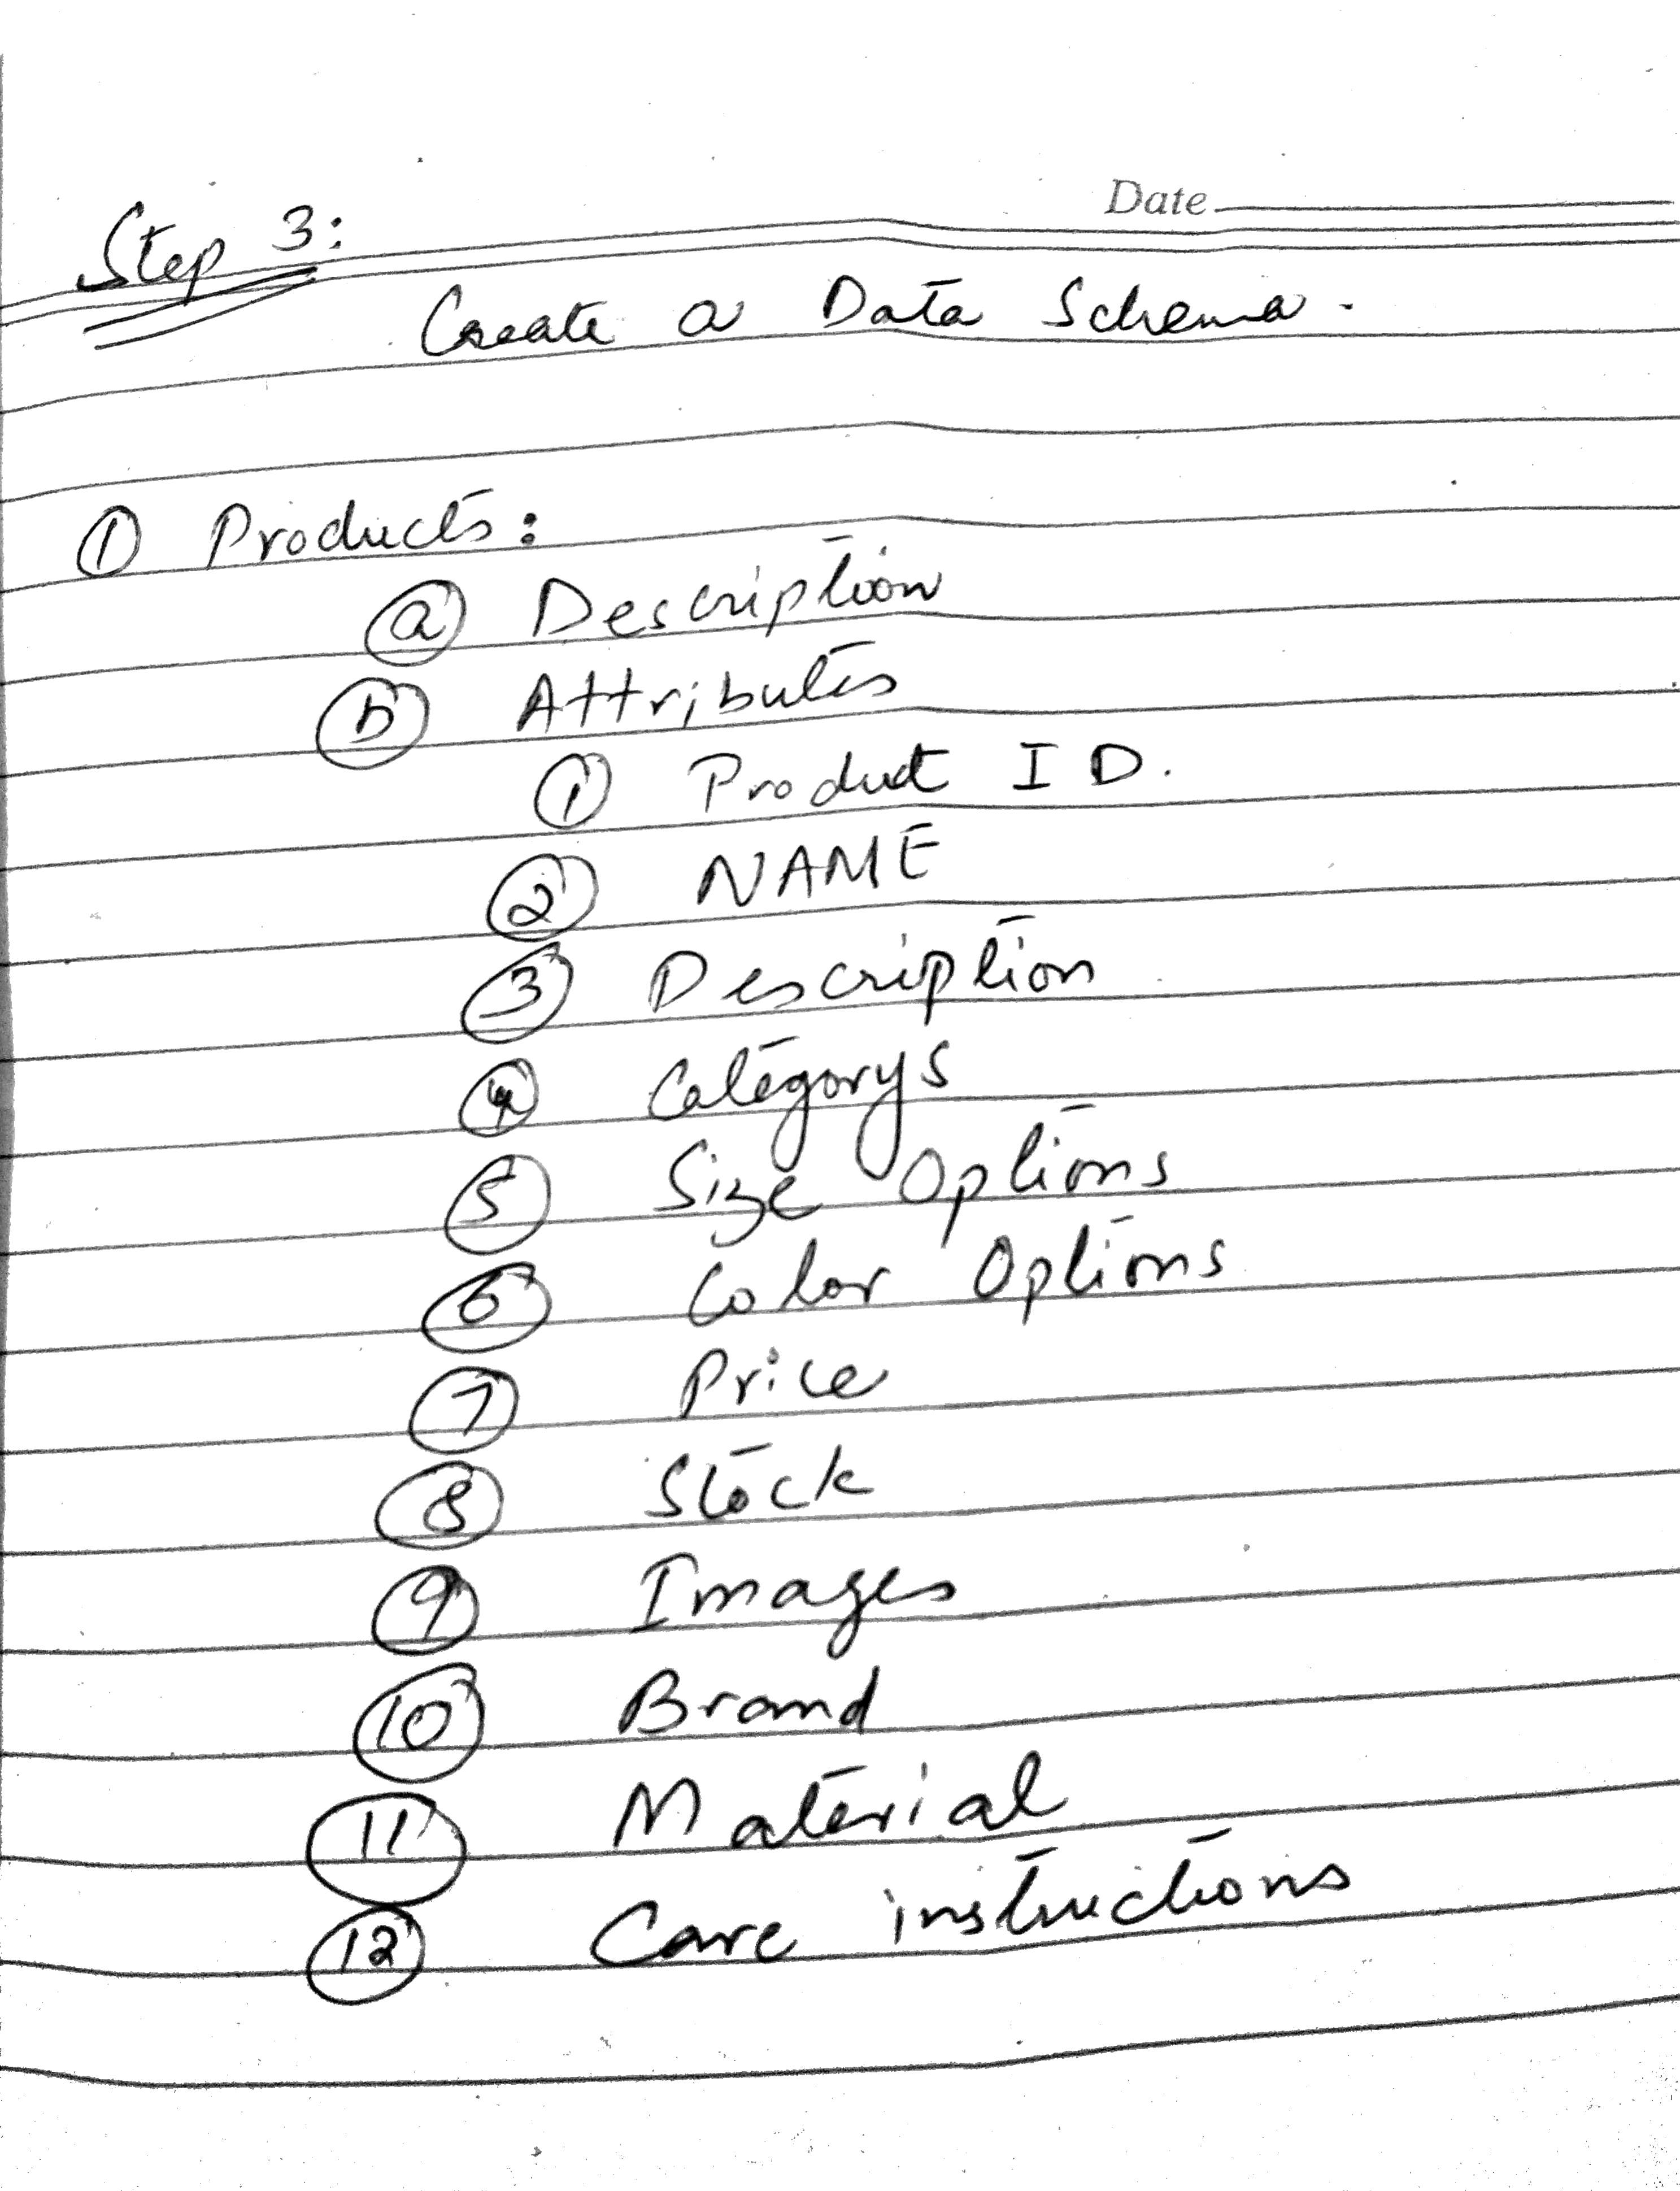 Date
Step 3:
Create a Data Schema.
① Products:
ⓐ Description
ⓑ Attributes
① Product ID.
② NAME
③ Description
④ Categorys
⑤ Size Options
⑥ Color Options
⑦ Price
⑧ Stock
⑨ Images
⑩ Brand
⑪ Material
⑫ Care instructions